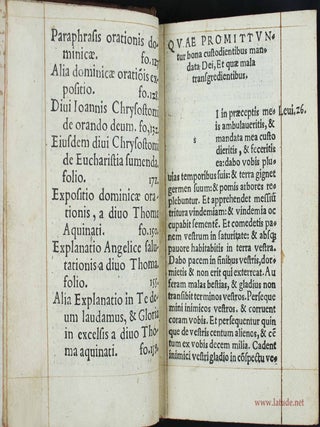 Paraphrasis orationis do-
minicæ. fo.127
Alia dominicæ oratiõis ex-
positio. fo.128.
Diui Ioannis Chrysostomi
de orando deum. fo.132.
Eiusdem diui Chrysostomi
de Eucharistia sumenda.
folio. 172.
Expositio dominicæ ora-
tionis, a diuo Thoma
Aquinati. fo.150.
Explanatio Angelice salu-
tationis a diuo Thoma.
folio. 155.
Alia Explanatio in Te de-
um laudamus, & Gloria
in excelsis a diuo Tho-
ma aquinati. fo.158.
QVAE PROMITTVN-
tur bona custodientibus man-
data Dei, Et quæ mala
transgredientibus.
I in præceptis me- Leui.26.
is ambulaueritis, &
mandata mea custo
s dieritis, & feceritis
ea: dabo vobis plu-
uias temporibus suis: & terra gignet
germen suum: & pomis arbores re-
plebuntur. Et apprehendet messis
tritura vindemiam: & vindemia oc
cupabit sementẽ. Et comedetis pa-
nem vestrum in saturitate: & absq;
pauore habitabitis in terra vestra.
Dabo pacem in finibus vestris, dor-
mietis & non erit qui exterreat. Au
feram malas bestias, & gladius non
transibit terminos vestros. Perseque
mini inimicos vestros. & corruent
coram vobis. Et persequentur quin
que de vestris centum alienos, & cen
tum ex vobis decem milia. Cadent
inimici vestri gladio in cõspectu ve-
www.latude.net